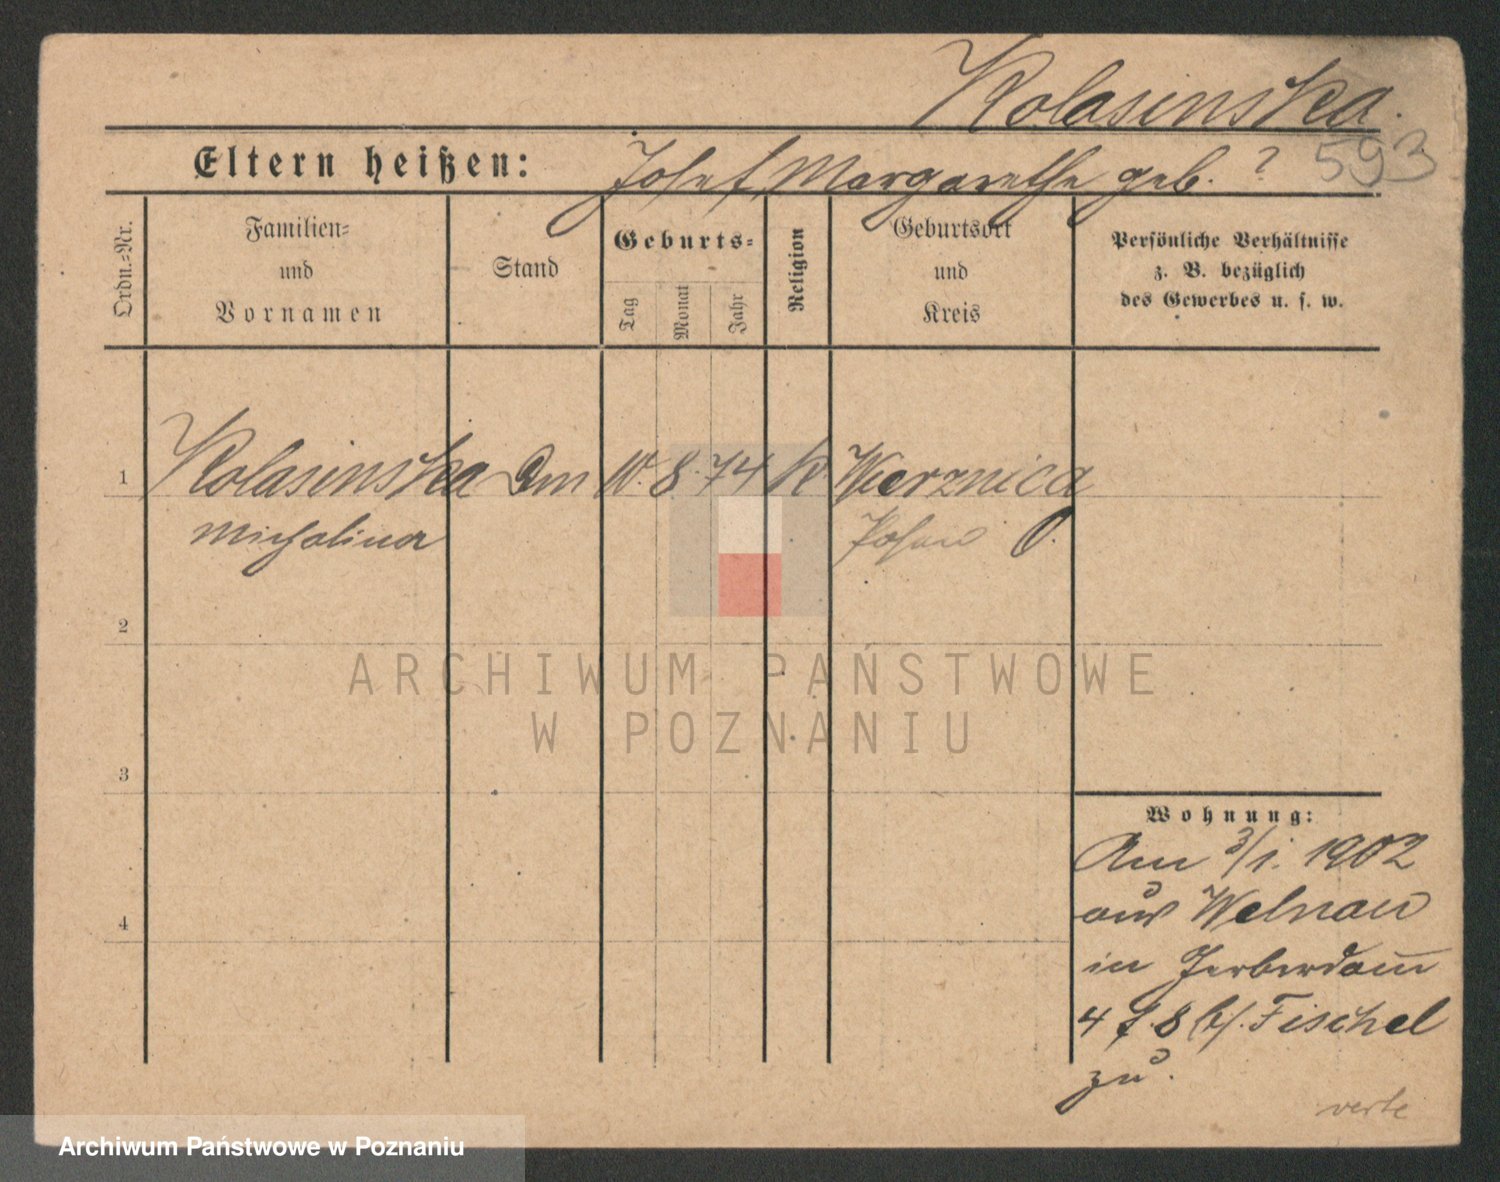 Kolasinska.
593
Eltern heißen: Josef, Margarethe geb. ?
Ordn.-Nr.
Familien- und Vornamen
Stand
Geburts-
Tag
Monat
Jahr
Religion
Geburtsort und Kreis
Persönliche Verhältnisse
z. B. bezüglich
des Gewerbes u. s. w.
1 Kolasinska 10. 8. 74 k. Wierznica
Michalina Posen O.
2
3
4
Wohnung:
Am 3/1. 1902
aus Welnau
in Gerberdam
4 b/. Fischel
zu.
verte
ARCHIWUM PAŃSTWOWE
W POZNANIU
Archiwum Państwowe w Poznaniu